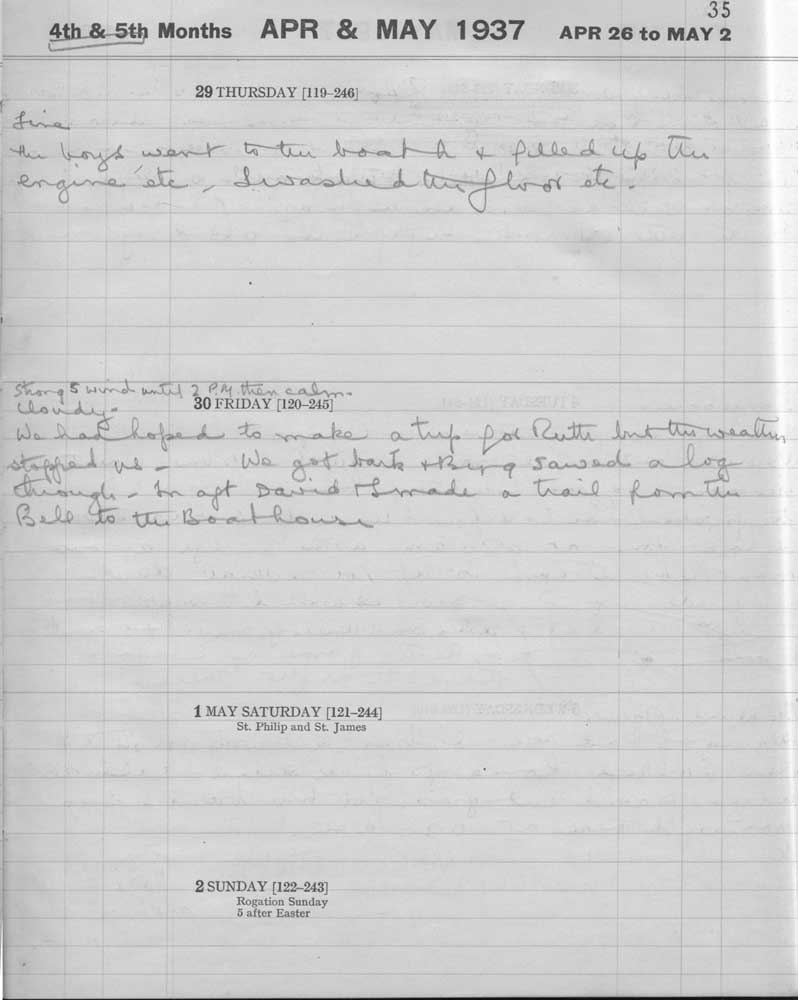 35
4th & 5th Months APR & MAY 1937 APR 26 to MAY 2
29 THURSDAY [119–246]
Fine
the boys went to the boat h & filled up the
engine etc, I washed the floor etc.
Strong S wind until 2 P.M. then calm.
Cloudy.
30 FRIDAY [120–245]
We had hoped to make a trip for Ruth but the weather
stopped us – We got bark & sawed a log
through – In aft David & I made a trail from the
Bell to the Boathouse
1 MAY SATURDAY [121–244]
St. Philip and St. James
2 SUNDAY [122–243]
Rogation Sunday
5 after Easter